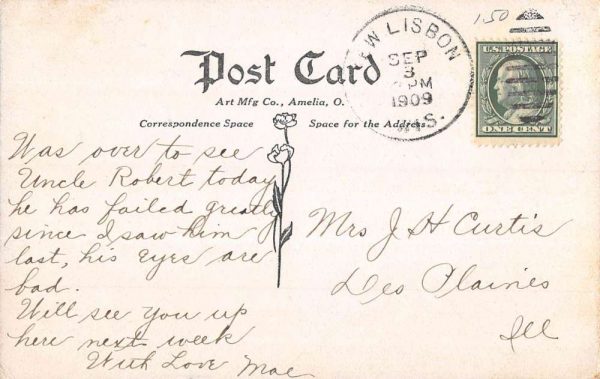 150
NEW LISBON
SEP
3
PM
1909
WIS.
U.S. POSTAGE
ONE CENT
Post Card
Art Mfg Co., Amelia, O.
Correspondence Space
Space for the Address
Was over to see
Uncle Robert today
he has failed greatly
since I saw him
last, his eyes are
bad.
Will see you up
here next week
With Love Mae
Mrs J H Curtis
Des Plaines
Ill